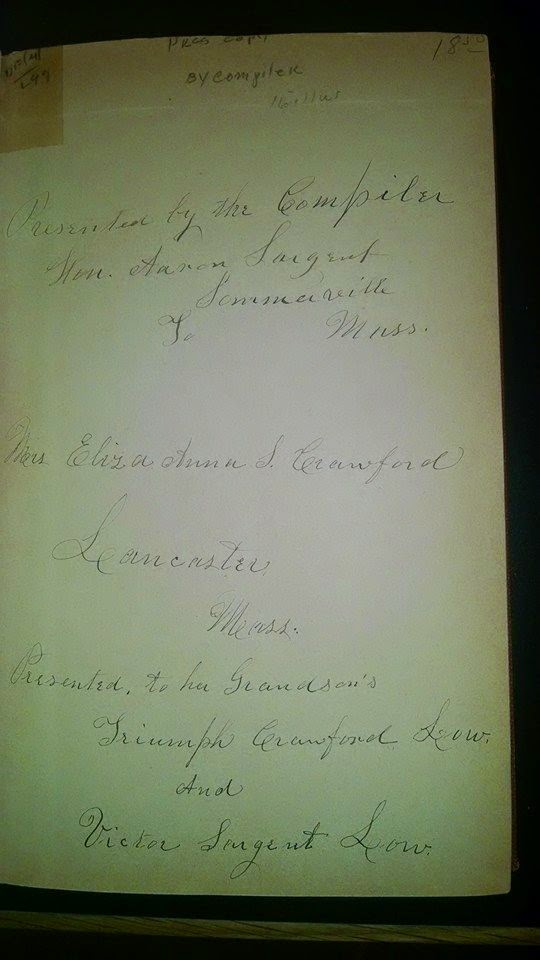 18.50
Pres copy
By Compiler
Presented by the Compiler
Hon. Aaron Sargent
Sommerville
To Mass.
Mrs Eliza Anna S. Crawford
Lancaster,
Mass.
Presented, to her Grandson's
Triumph Crawford Low.
And
Victor Sargent Low.